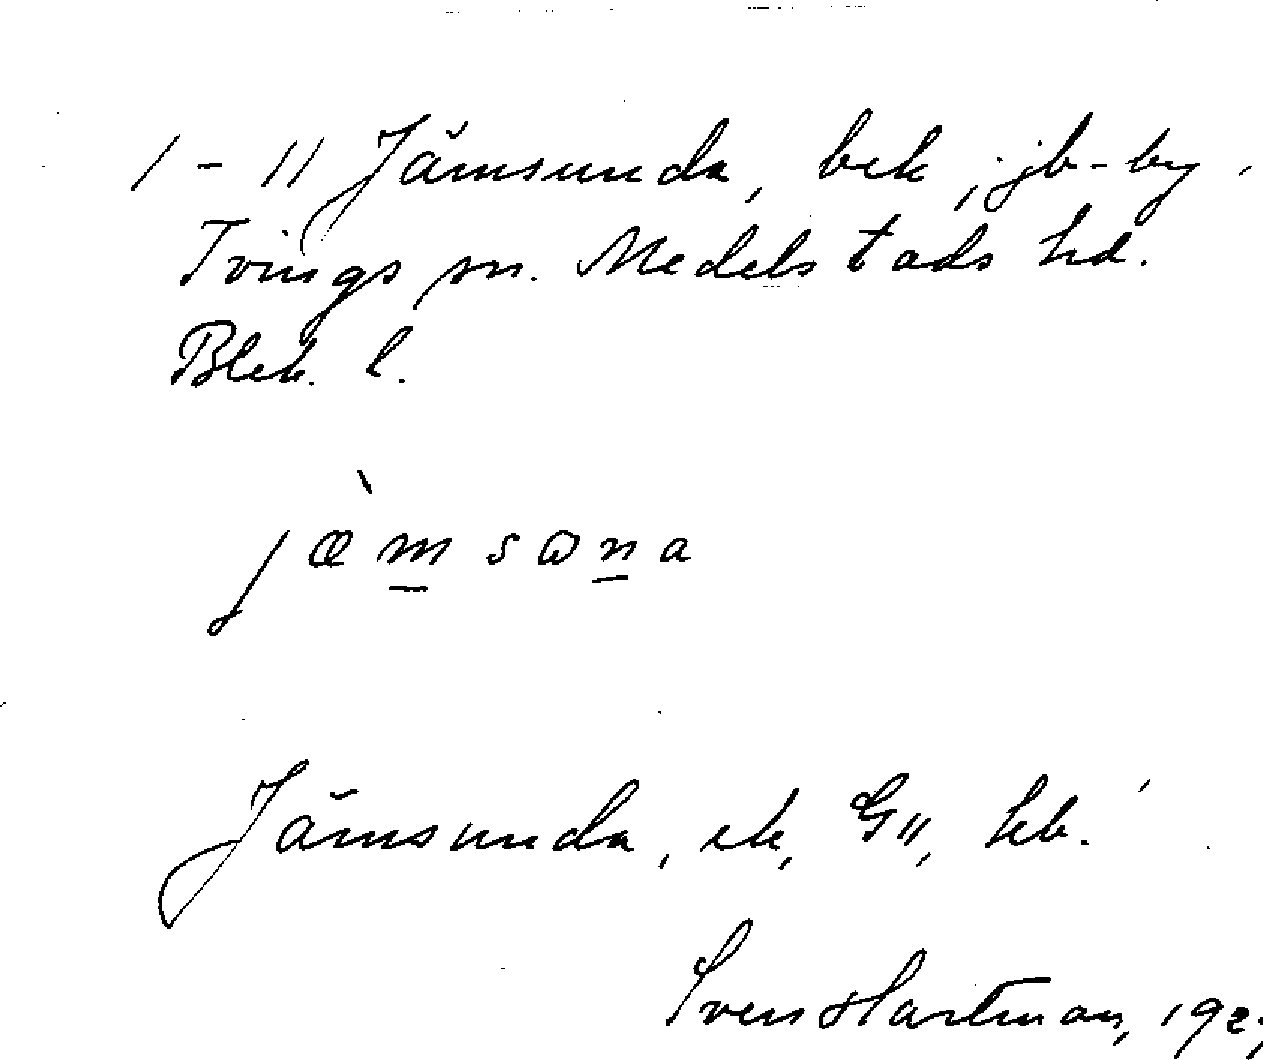 1-11 Jämsunda, bek, jb-by,
Tvings sn. Medelstads hd.
Blek. l.
jæ̀msɷna
Jämsunda, ek, G11, hb.
Sven Hartman, 192